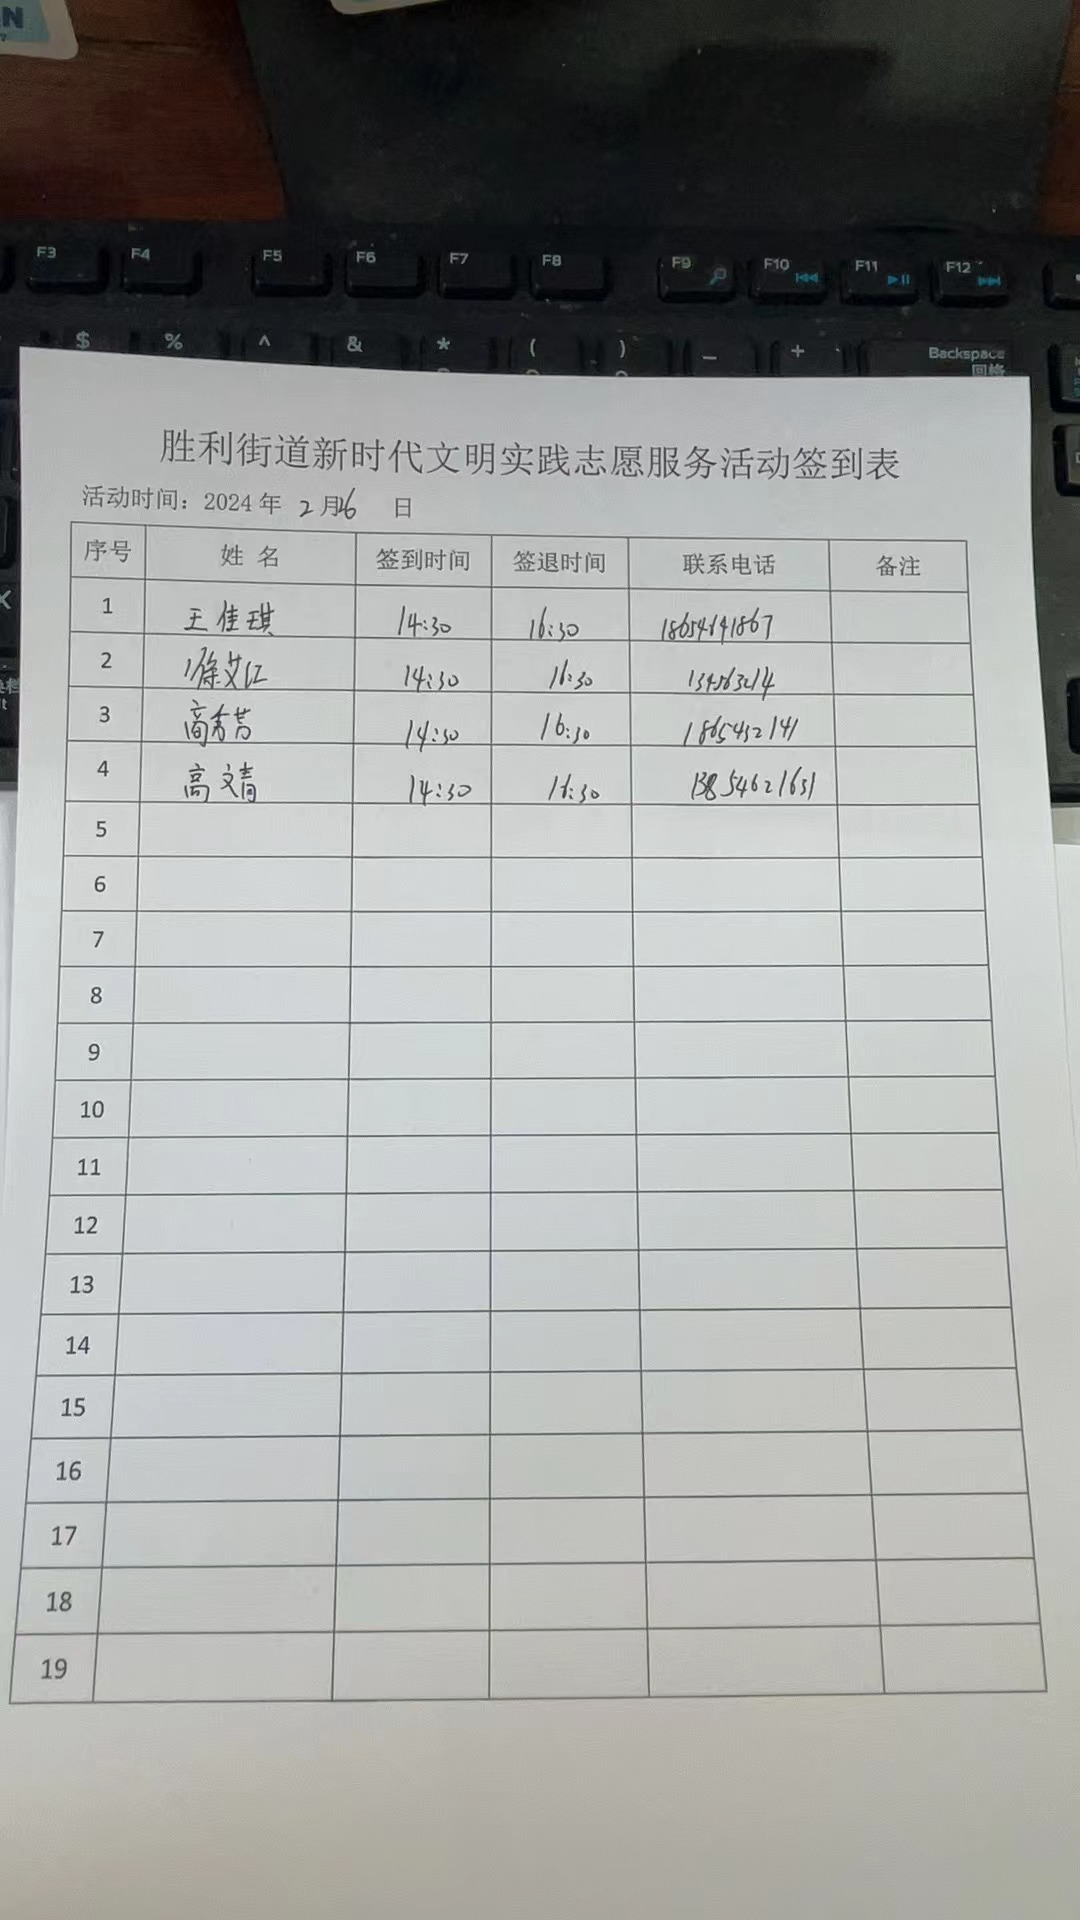 N
F3 F4 F5 F6 F7 F8 F9 F10 F11 F12
$ % ^ & * ( ) _ + Backspace
回格
胜利街道新时代文明实践志愿服务活动签到表
活动时间：2024年 2月26 日
序号 姓 名 签到时间 签退时间 联系电话 备注
1 王佳琪 14:30 16:30 18654641867
2 徐艾江 14:30 16:30
3 高秀芸 14:30 16:30 1865432141
4 高文青 14:30 16:30 13854621631
5
6
7
8
9
10
11
12
13
14
15
16
17
18
19